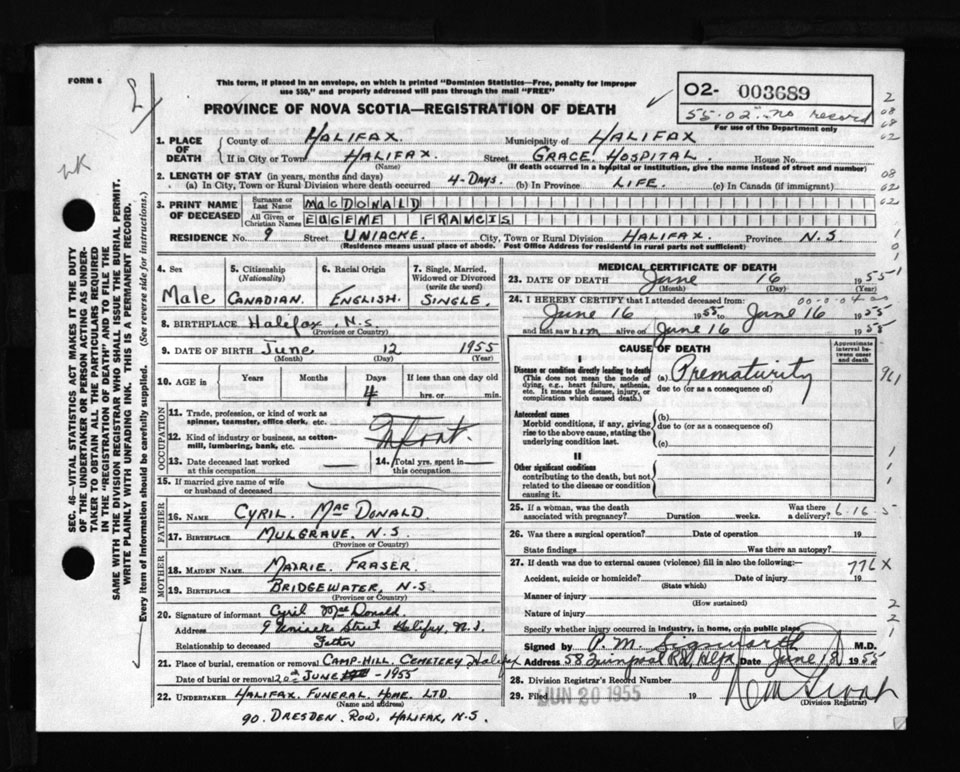 FORM 6
This form, if placed in an envelope, on which is printed "Dominion Statistics—Free, penalty for improper
use $50," and properly addressed will pass through the mail "FREE"
PROVINCE OF NOVA SCOTIA—REGISTRATION OF DEATH
02- 003689
55-02 - no record
For use of the Department only
SEC. 46—VITAL STATISTICS ACT MAKES IT THE DUTY
OF THE UNDERTAKER OR PERSON ACTING AS UNDER-
TAKER TO OBTAIN ALL THE PARTICULARS REQUIRED
IN THE "REGISTRATION OF DEATH" AND TO FILE THE
SAME WITH THE DIVISION REGISTRAR WHO SHALL ISSUE THE BURIAL PERMIT.
WRITE PLAINLY WITH UNFADING INK. THIS IS A PERMANENT RECORD.
Every item of Information should be carefully supplied. (See reverse side for instructions.)
1. PLACE OF DEATH
County of HALIFAX. Municipality of HALIFAX
If in City or Town HALIFAX. Street GRACE. HOSPITAL. House No.
(Name) (If death occurred in a hospital or institution, give the name instead of street and number)
2. LENGTH OF STAY (in years, months and days)
(a) In City, Town or Rural Division where death occurred 4-DAYS. (b) In Province LIFE. (c) In Canada (if immigrant)
3. PRINT NAME OF DECEASED
Surname or Last Name MACDONALD
All Given or Christian Names EUGENE FRANCIS
RESIDENCE No. 9 Street UNIACKE. City, Town or Rural Division HALIFAX. Province N.S.
(Residence means usual place of abode. Post Office Address for residents in rural parts not sufficient)
4. Sex
Male
5. Citizenship (Nationality)
CANADIAN.
6. Racial Origin
ENGLISH.
7. Single, Married, Widowed or Divorced (write the word)
SINGLE.
8. BIRTHPLACE Halifax, N.S.
(Province or Country)
9. DATE OF BIRTH June 12 1955
(Month) (Day) (Year)
10. AGE in Years Months Days If less than one day old
4 hrs. or min.
OCCUPATION
11. Trade, profession, or kind of work as
spinner, teamster, office clerk, etc.
12. Kind of industry or business, as cotton-
mill, lumbering, bank, etc.
Infant.
13. Date deceased last worked
at this occupation
14. Total yrs. spent in
this occupation
15. If married give name of wife
or husband of deceased
FATHER
16. NAME CYRIL. MACDONALD.
17. BIRTHPLACE MULGRAVE, N.S.
(Province or Country)
MOTHER
18. MAIDEN NAME MAIRIE. FRASER.
19. BIRTHPLACE BRIDGEWATER, N.S.
(Province or Country)
20. Signature of informant Cyril MacDonald.
Address 9 Uniacke Street Halifax, N.S.
Relationship to deceased Father
21. Place of burial, cremation or removal CAMP-HILL. CEMETERY Halifax
Date of burial or removal 20th JUNE -1955
22. UNDERTAKER HALIFAX. FUNERAL. HOME. LTD.
(Name and address)
90. DRESDEN. ROW, HALIFAX, N.S.
MEDICAL CERTIFICATE OF DEATH
23. DATE OF DEATH June 16 1955
(Month) (Day)
24. I HEREBY CERTIFY that I attended deceased from:
June 16 1955 to June 16 1955
and last saw him alive on June 16 1955
CAUSE OF DEATH
Approximate interval between onset and death
I
Disease or condition directly leading to death
(This does not mean the mode of
dying, e.g., heart failure, asthenia,
etc. It means the disease, injury, or
complication which caused death.)
(a) Prematurity
due to (or as a consequence of)
Antecedent causes
Morbid conditions, if any, giving
rise to the above cause, stating the
underlying condition last.
(b)
due to (or as a consequence of)
(c)
II
Other significant conditions
contributing to the death, but not
related to the disease or condition
causing it.
25. If a woman, was the death
associated with pregnancy? Duration weeks. Was there
a delivery? 6-16-5
26. Was there a surgical operation? Date of operation 19
State findings Was there an autopsy?
27. If death was due to external causes (violence) fill in also the following:—
776X
Accident, suicide or homicide? Date of injury 19
(State which)
Manner of injury
(How sustained)
Nature of injury
Specify whether injury occurred in industry, in home, or in public place
Signed by P. M. Sigsworth M.D.
Address 58 Quinpool Rd, Hfx Date June 18 1955
28. Division Registrar's Record Number
29. Filed JUN 20 1955 19
(Division Registrar)